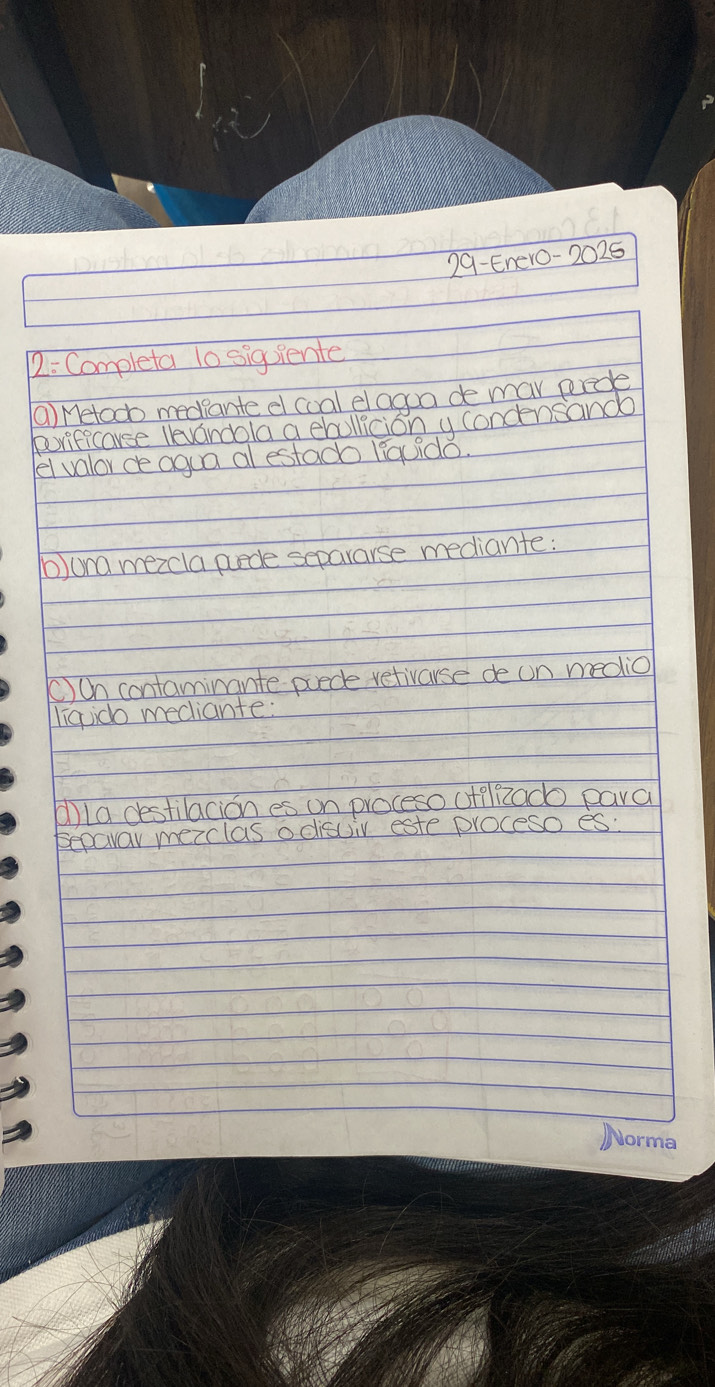 29-Enero-2025
2.- Completa lo siguiente
a) Metodo mediante el cual el agua de mar puede
purificarse levándola a ebullición y condensando
el valor de agua al estado líquido.
b) una mezcla puede separarse mediante:
c) Un contaminante puede retirarse de un medio
líquido mediante:
d) la destilación es un proceso utilizado para
separar mezclas o disuir este proceso es:
Norma